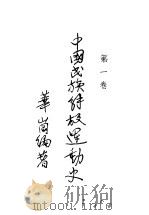 第一卷
中國民族解放運動史
華崗編著